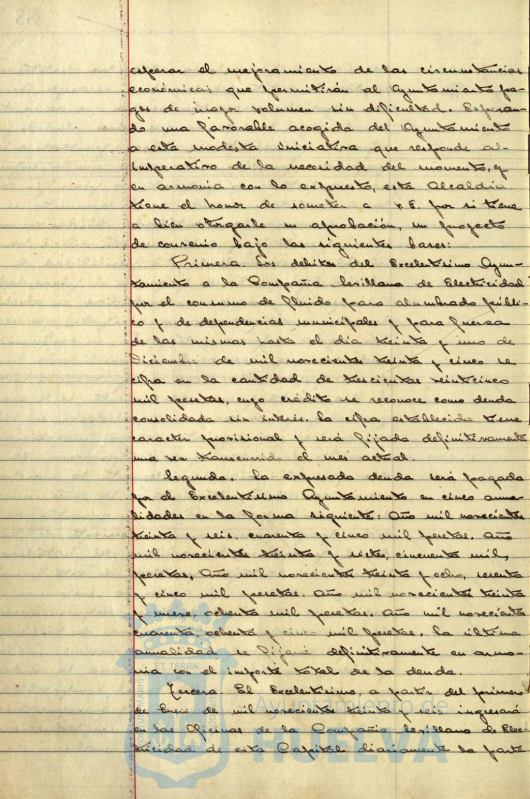 esperar el mejoramiento de las circunstancias
económicas que permitirán al Ayuntamiento pa-
gos de mayor volumen sin dificultad. Esperan-
do una favorable acogida del Ayuntamiento
a esta modesta iniciativa que responde al
imperativo de la necesidad del momento, y
en armonía con lo expuesto, esta Alcaldía
tiene el honor de someter a V.E. por si tiene
a bien otorgarle su aprobación, un proyecto
de convenio bajo las siguientes bases:
Primera. Los débitos del Excelentísimo Ayun-
tamiento a la Compañía Sevillana de Electricidad
por el consumo de fluido para alumbrado públi-
co y de dependencias municipales y para fuerza
de las mismas hasta el día treinta y uno de
Diciembre de mil novecientos treinta y cinco se
cifra en la cantidad de trescientas veinticinco
mil pesetas, cuyo crédito se reconoce como deuda
consolidada sin interés. La cifra establecida tiene
caracter provisional y será fijada definitivamente
una vez transcurrido el mes actual.
Segunda. La expresada deuda será pagada
por el Excelentísimo Ayuntamiento en cinco anua-
lidades en la forma siguiente: Año mil novecientos
treinta y seis, cuarenta y cinco mil pesetas. Año
mil novecientos treinta y siete, cincuenta mil
pesetas. Año mil novecientos treinta y ocho, sesenta
y cinco mil pesetas. Año mil novecientos treinta
y nueve, ochenta mil pesetas. Año mil novecientos
cuarenta, ochenta y cinco mil pesetas. La última
anualidad se fijará definitivamente en armo-
nía con el importe total de la deuda.
Tercera El Excelentísimo, a partir del primero
de Enero de mil novecientos treinta y seis ingresará
en las Oficinas de la Compañía Sevillana de Elec-
tricidad de esta Capital diariamente la parte
Ayuntamiento de
HUELVA